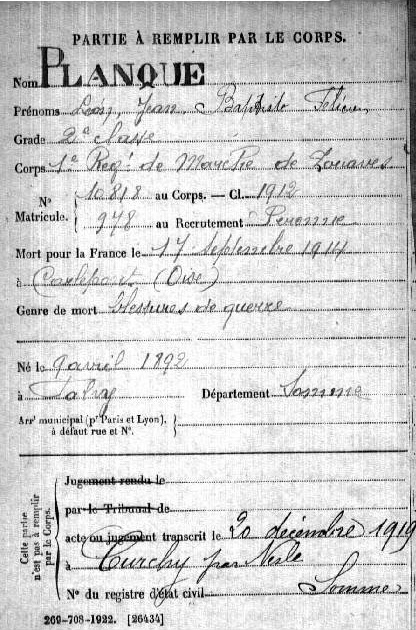 PARTIE À REMPLIR PAR LE CORPS.
Nom PLANQUE
Prénoms Léon, Jean, Baptiste Félicien
Grade 2e classe
Corps 1e Regt de Marche de Zouaves
N° Matricule. 10818 au Corps. — Cl. 1912
978 au Recrutement Peronne
Mort pour la France le 17 Septembre 1914
à Carlepont (Oise)
Genre de mort blessures de guerre
Né le 9 avril 1892
à Falvy Département Somme
Arrt municipal (pr Paris et Lyon),
à défaut rue et N°.
Cette partie n'est pas à remplir par le Corps.
Jugement rendu le
par le Tribunal de
acte ou jugement transcrit le 20 décembre 1919
à Curchy par Nesle
Somme
N° du registre d'état civil
269-708-1922. [26434]